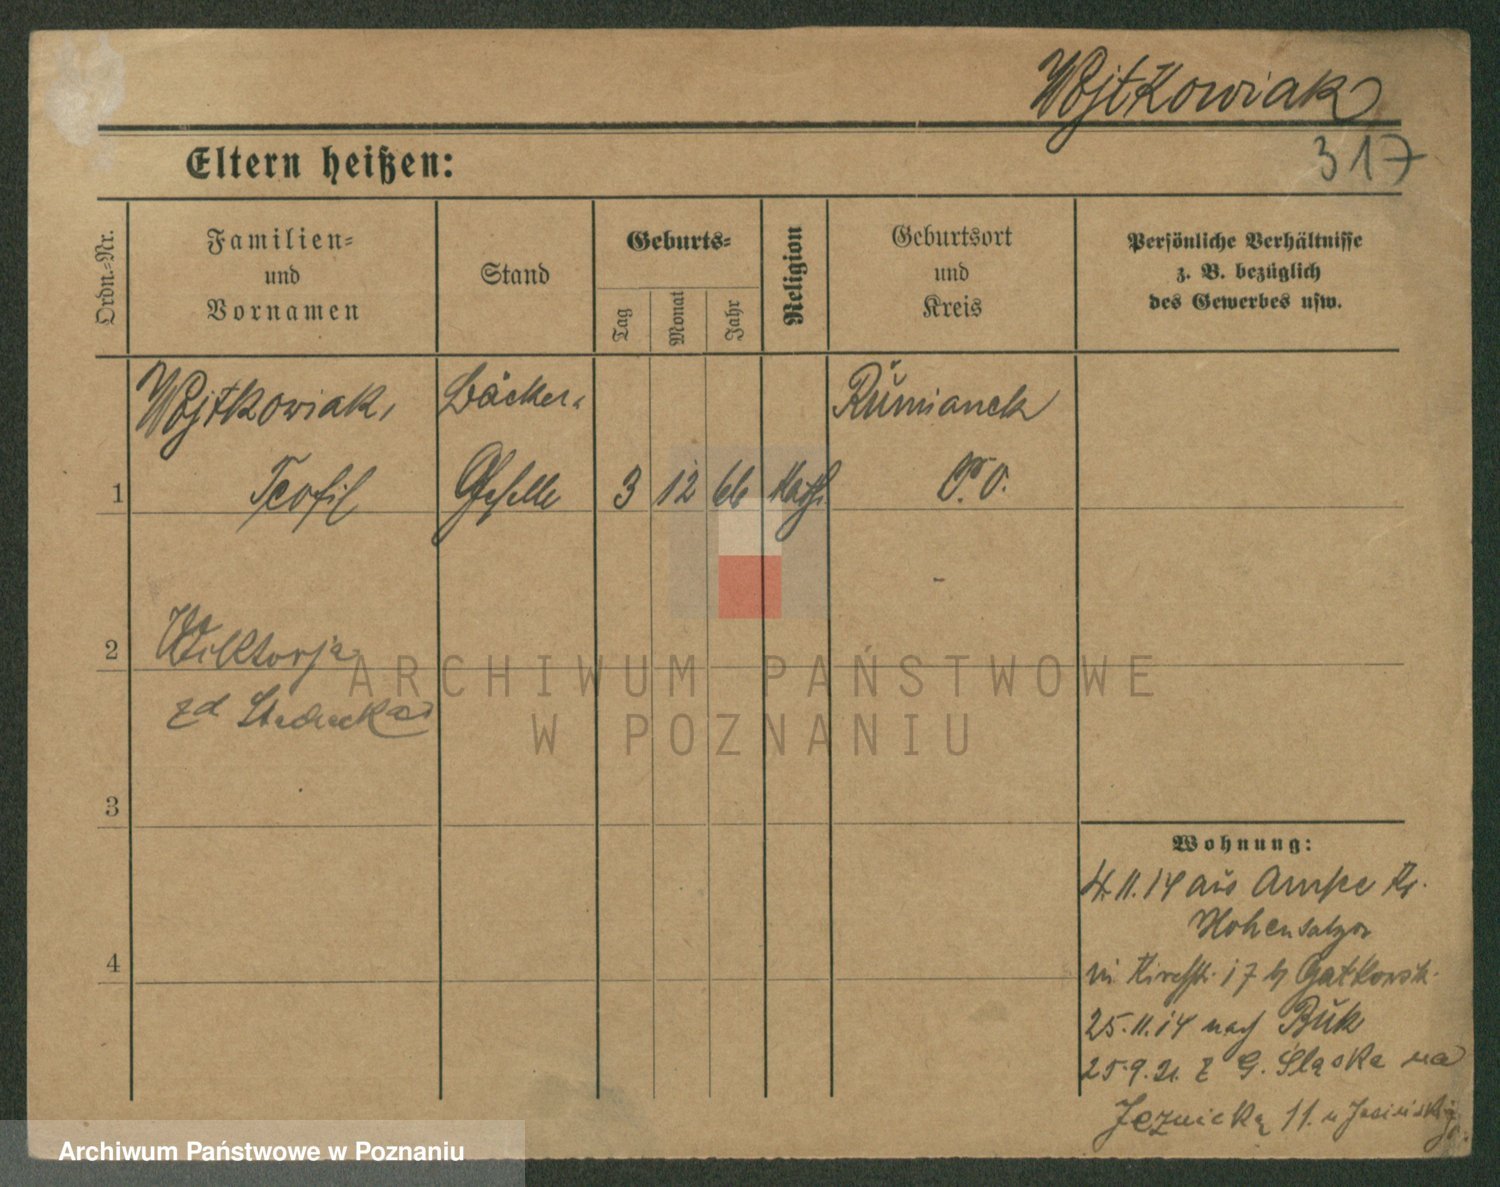 Wojtkowiak
317
Eltern heißen:
Ordn.-Nr.
Familien-
und
Vornamen
Stand
Geburts-
Tag
Monat
Jahr
Religion
Geburtsort
und
Kreis
Persönliche Verhältnisse
z. B. bezüglich
des Gewerbes usw.
Wojtkowiak,
Bäcker-
Rumianek
1
Teofil
Geselle
3
12
66
Kath.
P. O.
2
Wiktorja
zd
ARCHIWUM PAŃSTWOWE
W POZNANIU
3
Wohnung:
4.11.14 aus Amsee Kr.
Hohensalza
in Kirchstr. 17 b
4
25.11.14 nach Buk
25.9.21. z G. Śląska na
11. u Jasińskiego
Archiwum Państwowe w Poznaniu